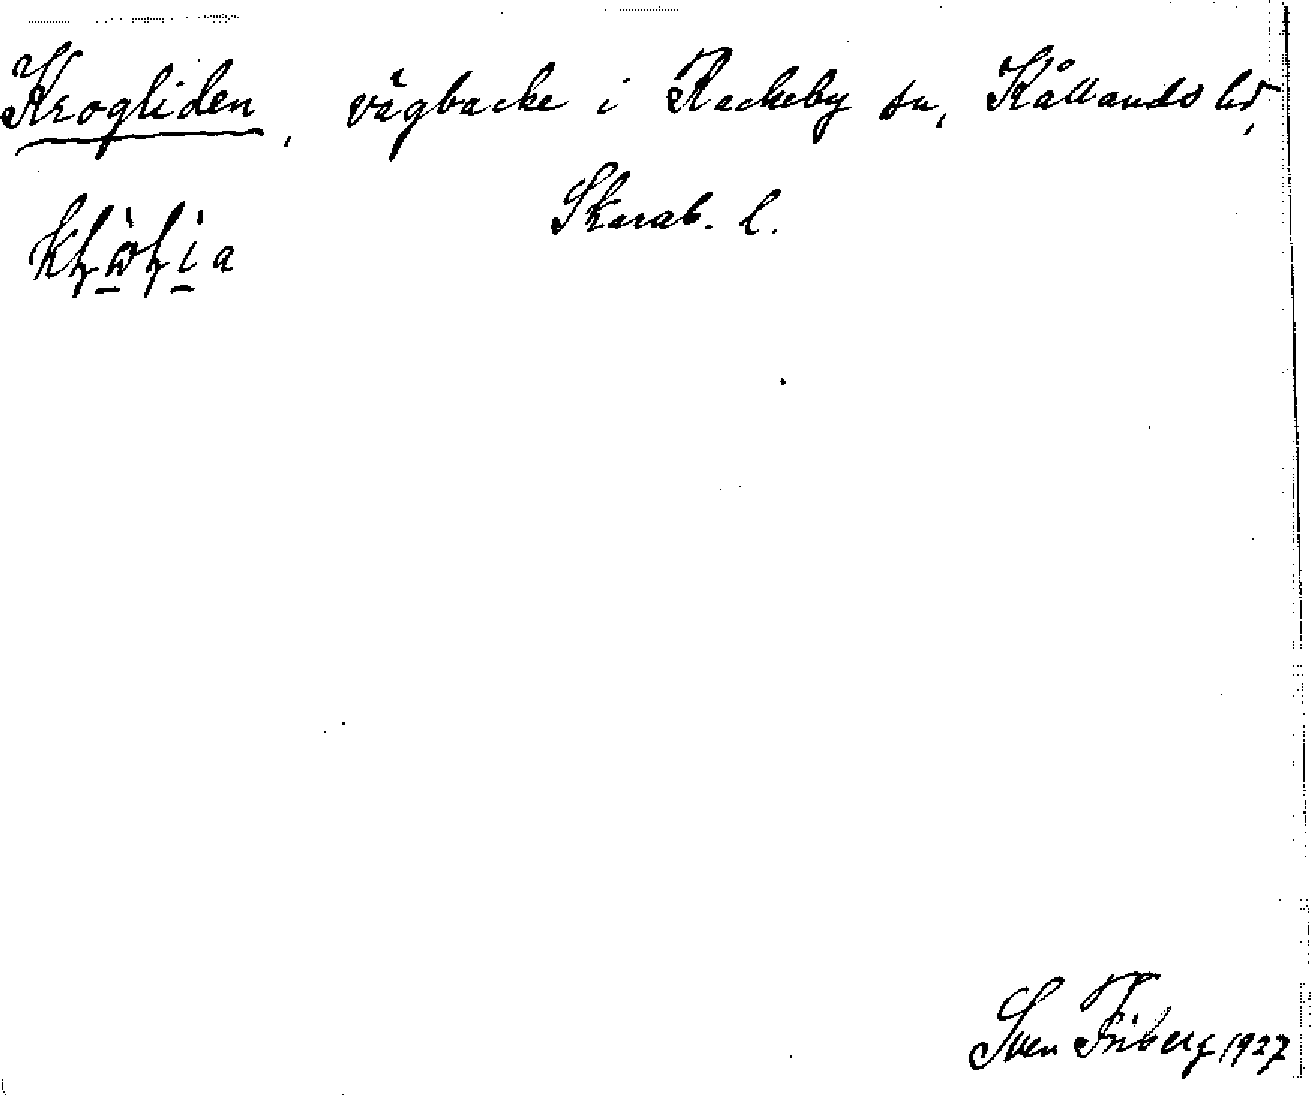 Krogliden, vägbacke i Rackeby sn, Kållands hd,
Skarab. l.
Sven Friberg 1937